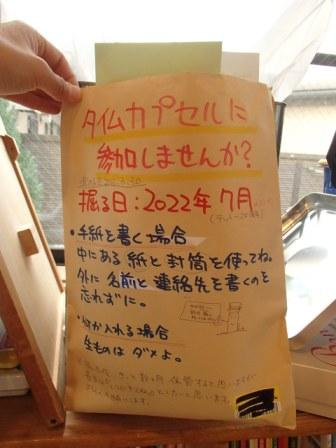 タイムカプセルに
参加しませんか?
掘る日：2022年 7月
・手紙を書く場合
中にある 紙と封筒を使ってね。
外に 名前と 連絡先を書くのを
忘れずに。
・何か入れる場合
生ものは ダメよ。